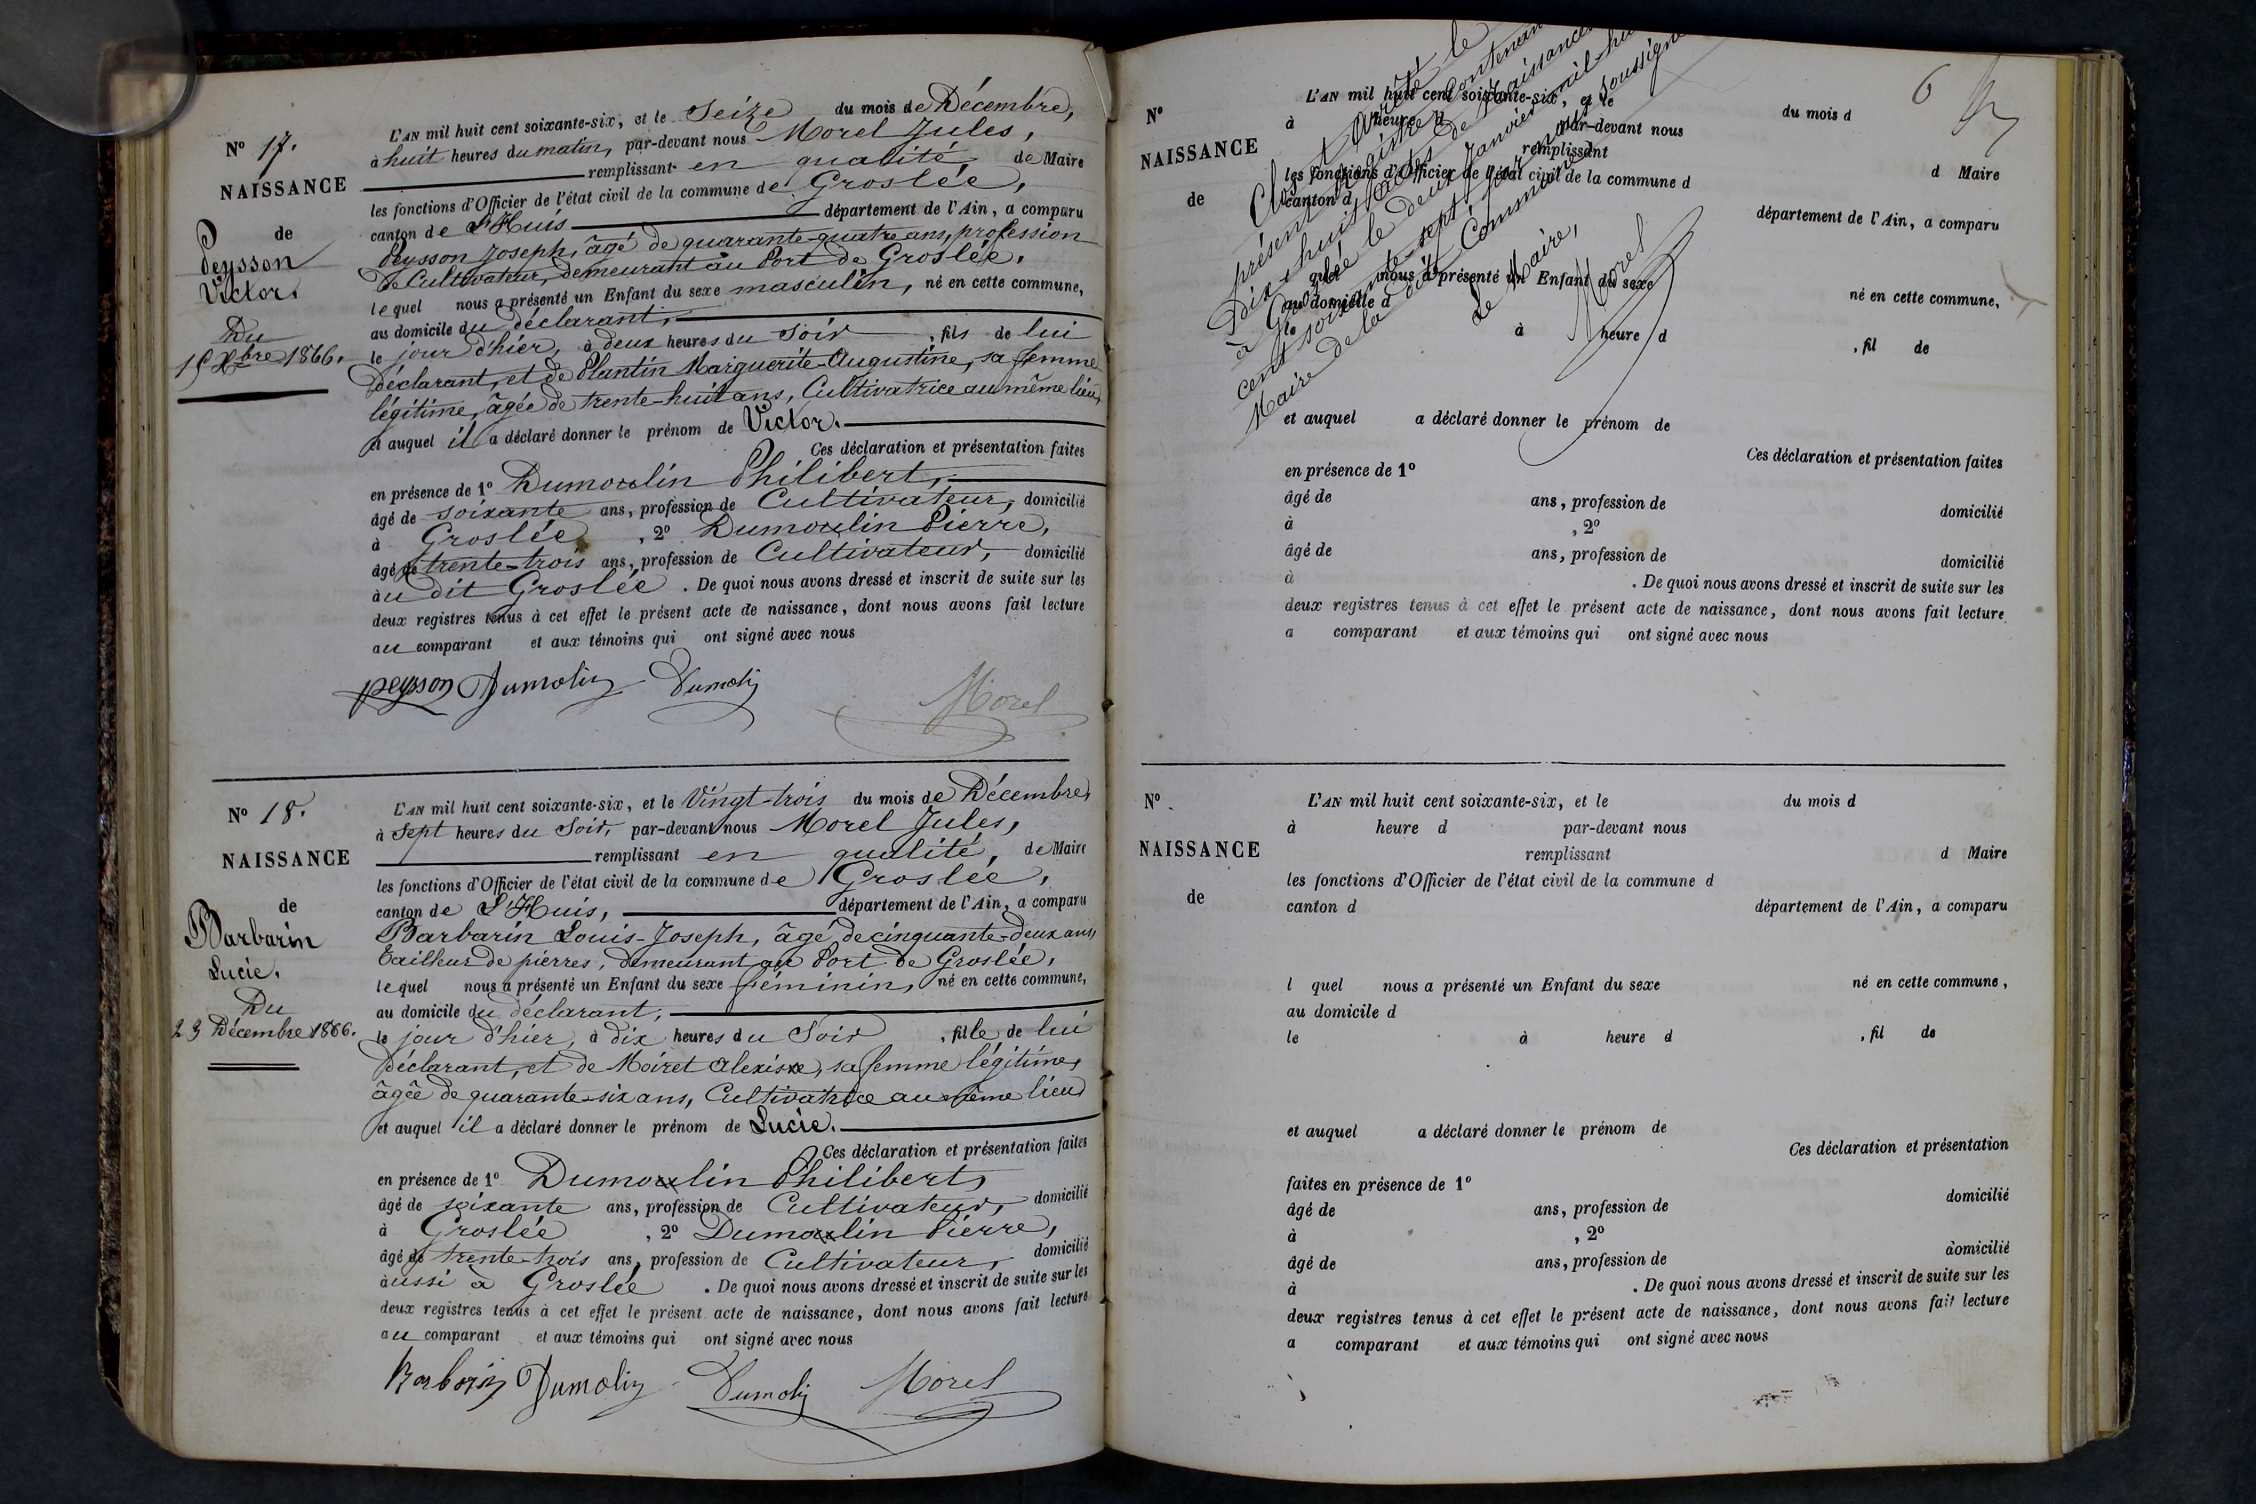 N° 17.
NAISSANCE
de
Peysson
Victor.
Du
15 Xbre 1866.
L'AN mil huit cent soixante-six, et le Seize du mois de Décembre,
à huit heures du matin, par-devant nous Morel Jules,
remplissant en qualité, de Maire
les fonctions d'Officier de l'état civil de la commune de Groslée,
canton de L'Huis département de l'Ain, a comparu
Peysson Joseph, âgé de quarante-quatre ans, profession
de Cultivateur, demeurant au Port de Groslée,
lequel nous a présenté un Enfant du sexe masculin, né en cette commune,
au domicile du déclarant,
le jour d'hier, à deux heures du Soir, fils de lui
Déclarant, et de Plantin Marguerite-Augustine, sa femme
légitime, âgée de trente-huit ans, Cultivatrice au même lieu,
et auquel il a déclaré donner le prénom de Victor.
Ces déclaration et présentation faites
en présence de 1° Dumoulin Philibert,
âgé de soixante ans, profession de Cultivateur, domicilié
à Groslée, 2° Dumoulin Pierre,
âgé de trente-trois ans, profession de Cultivateur, domicilié
au dit Groslée. De quoi nous avons dressé et inscrit de suite sur les
deux registres tenus à cet effet le présent acte de naissance, dont nous avons fait lecture
au comparant et aux témoins qui ont signé avec nous
peysson Dumolin Dumolin Morel
N° 18.
NAISSANCE
de
Barbarin
Lucie.
Du
23 Décembre 1866.
L'AN mil huit cent soixante-six, et le Vingt-trois du mois de Décembre,
à sept heures du Soir, par-devant nous Morel Jules,
remplissant en qualité, de Maire
les fonctions d'Officier de l'état civil de la commune de Groslée,
canton de L'Huis, département de l'Ain, a comparu
Barbarin Louis-Joseph, âgé de cinquante-deux ans,
tailleur de pierres, demeurant au Port de Groslée,
lequel nous a présenté un Enfant du sexe féminin, né en cette commune,
au domicile du déclarant,
le jour d'hier, à dix heures du Soir, fille de lui
Déclarant, et de Moiret Alexise, sa femme légitime,
âgée de quarante-six ans, Cultivatrice au même lieu
et auquel il a déclaré donner le prénom de Lucie.
Ces déclaration et présentation faites
en présence de 1° Dumoulin Philibert,
âgé de soixante ans, profession de Cultivateur, domicilié
à Groslée, 2° Dumoulin Pierre,
âgé de trente-trois ans, profession de Cultivateur, domicilié
aussi à Groslée. De quoi nous avons dressé et inscrit de suite sur les
deux registres tenus à cet effet le présent acte de naissance, dont nous avons fait lecture
au comparant et aux témoins qui ont signé avec nous
Barbarin Dumolin Dumolin Morel
6
N°
NAISSANCE
de
L'AN mil huit cent soixante-six, et le du mois d
à heure d par-devant nous
remplissant d Maire
les fonctions d'Officier de l'état civil de la commune d
canton d département de l'Ain, a comparu
quel nous a présenté un Enfant du sexe né en cette commune,
au domicile d
le à heure d, fil de
et auquel a déclaré donner le prénom de
Ces déclaration et présentation faites
en présence de 1°
âgé de ans, profession de domicilié
à, 2°
âgé de ans, profession de domicilié
à . De quoi nous avons dressé et inscrit de suite sur les
deux registres tenus à cet effet le présent acte de naissance, dont nous avons fait lecture
a comparant et aux témoins qui ont signé avec nous
Clos et arrêté le
présent Registre contenant
Dix-huit actes de Naissance
à Groslée le deux Janvier mil-huit
cent soixante-sept par nous soussigné
Maire de la dite Commune.
Le Maire,
Morel
N°
NAISSANCE
de
L'AN mil huit cent soixante-six, et le du mois d
à heure d par-devant nous
remplissant d Maire
les fonctions d'Officier de l'état civil de la commune d
canton d département de l'Ain, a comparu
l quel nous a présenté un Enfant du sexe né en cette commune,
au domicile d
le à heure d, fil de
et auquel a déclaré donner le prénom de
Ces déclaration et présentation
faites en présence de 1°
âgé de ans, profession de domicilié
à, 2°
âgé de ans, profession de domicilié
à . De quoi nous avons dressé et inscrit de suite sur les
deux registres tenus à cet effet le présent acte de naissance, dont nous avons fait lecture
a comparant et aux témoins qui ont signé avec nous